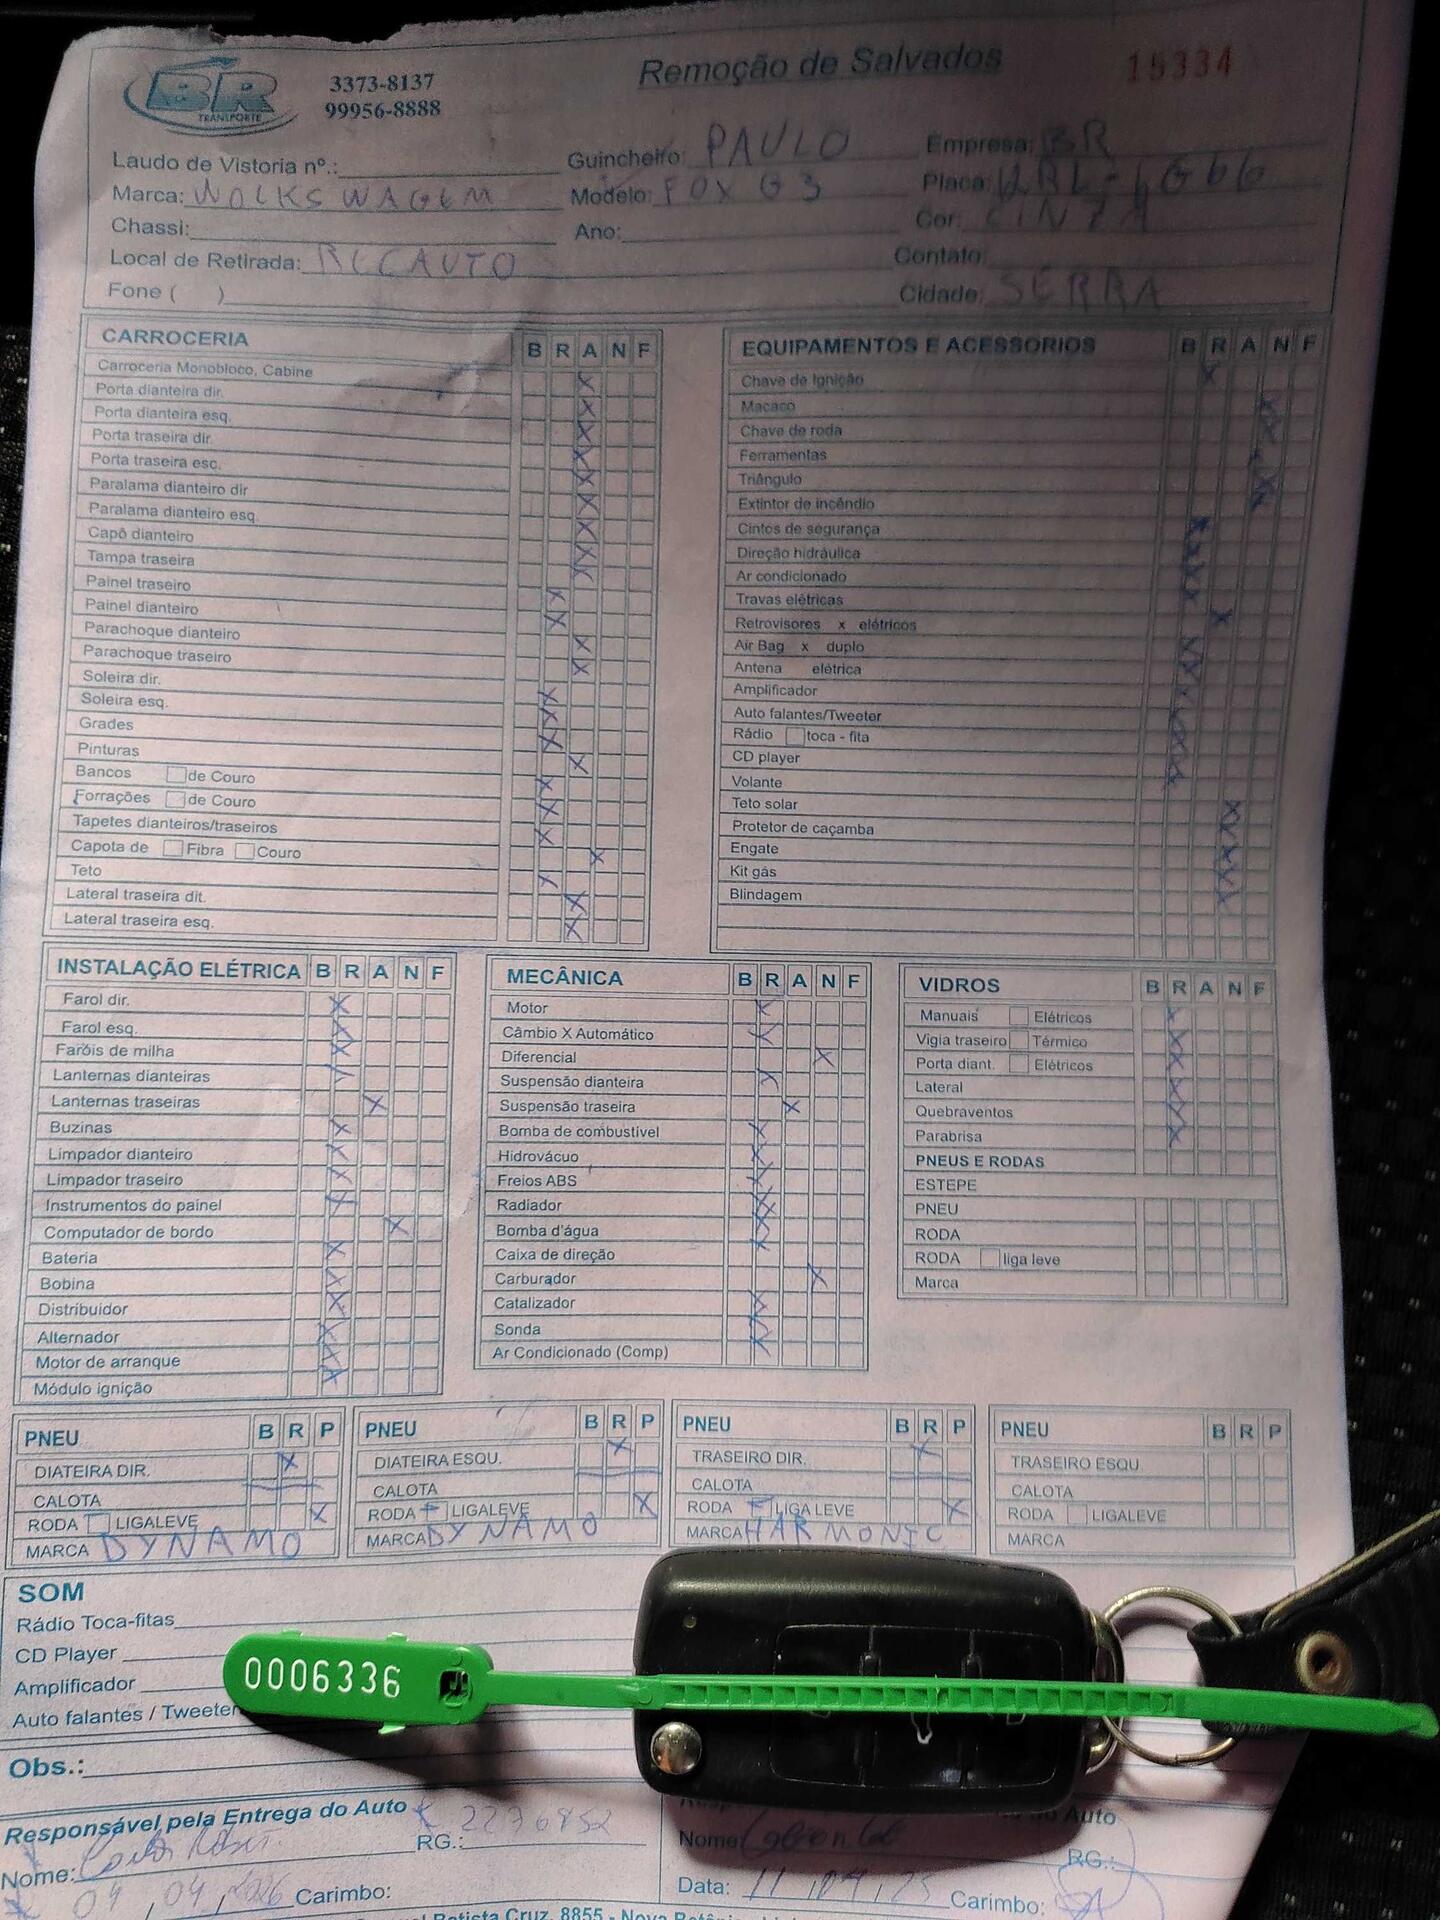 BR TRANSPORTE
3373-8137
99956-8888
Remoção de Salvados
15334
Laudo de Vistoria nº.: Guincheiro: PAULO Empresa: BR
Marca: WOLKSWAGEM Modelo: FOX G3 Placa:
Chassi: Ano: Cor: CINZA
Local de Retirada: RECAUTO Contato:
Fone ( ) Cidade: SERRA
CARROCERIA B R A N F
Carroceria Monobloco, Cabine
Porta dianteira dir.
Porta dianteira esq.
Porta traseira dir.
Porta traseira esc.
Paralama dianteiro dir
Paralama dianteiro esq.
Capô dianteiro
Tampa traseira
Painel traseiro
Painel dianteiro
Parachoque dianteiro
Parachoque traseiro
Soleira dir.
Soleira esq.
Grades
Pinturas
Bancos de Couro
Forrações de Couro
Tapetes dianteiros/traseiros
Capota de Fibra Couro
Teto
Lateral traseira dit.
Lateral traseira esq.
EQUIPAMENTOS E ACESSORIOS B R A N F
Chave de Ignição
Macaco
Chave de roda
Ferramentas
Triângulo
Extintor de incêndio
Cintos de segurança
Direção hidráulica
Ar condicionado
Travas elétricas
Retrovisores x elétricos
Air Bag x duplo
Antena elétrica
Amplificador
Auto falantes/Tweeter
Rádio toca - fita
CD player
Volante
Teto solar
Protetor de caçamba
Engate
Kit gás
Blindagem
INSTALAÇÃO ELÉTRICA B R A N F
Farol dir.
Farol esq.
Faróis de milha
Lanternas dianteiras
Lanternas traseiras
Buzinas
Limpador dianteiro
Limpador traseiro
Instrumentos do painel
Computador de bordo
Bateria
Bobina
Distribuidor
Alternador
Motor de arranque
Módulo ignição
MECÂNICA B R A N F
Motor
Câmbio X Automático
Diferencial
Suspensão dianteira
Suspensão traseira
Bomba de combustível
Hidrovácuo
Freios ABS
Radiador
Bomba d'água
Caixa de direção
Carburador
Catalizador
Sonda
Ar Condicionado (Comp)
VIDROS B R A N F
Manuais Elétricos
Vigia traseiro Térmico
Porta diant. Elétricos
Lateral
Quebraventos
Parabrisa
PNEUS E RODAS
ESTEPE
PNEU
RODA
RODA liga leve
Marca
PNEU B R P
DIATEIRA DIR.
CALOTA
RODA LIGALEVE
MARCA DYNAMO
PNEU B R P
DIATEIRA ESQU.
CALOTA
RODA LIGALEVE
MARCA DYNAMO
PNEU B R P
TRASEIRO DIR.
CALOTA
RODA LIGALEVE
MARCA HARMONIC
PNEU B R P
TRASEIRO ESQU.
CALOTA
RODA LIGALEVE
MARCA
SOM
Rádio Toca-fitas
CD Player
Amplificador
Auto falantes / Tweeter
0006336
Obs.:
Responsável pela Entrega do Auto
RG.: 2276852
Nome:
04, 04, 2026 Carimbo:
Auto
Nome:
RG.:
Data: 11, 04, 25 Carimbo:
Batista Cruz, 8855 - Nova